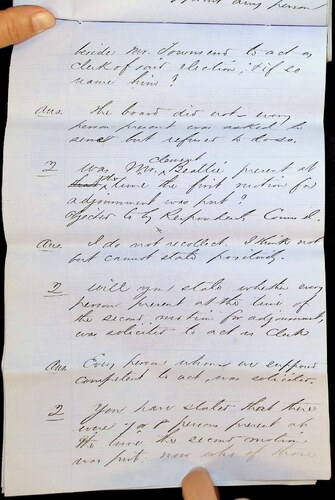 any person
beside Mr. Townsend to act as
clerk of said election; & if so
name him?
Ans. The board did not - every
person present was asked to
serve but refused to do so.
Q Was Mr. Clement Beattie present at
the time the first motion for
adjournment was put?
Objected to by Respondents Counsel.
Ans. I do not recollect. I think not
but cannot state positively.
Q Will you state whether every
person present at the time of
the second motion for adjournment,
was solicited to act as Clerk
Ans. Every person whom we supposed
competent to act, was solicited.
Q You have stated that there
were 7 or 8 persons present at
the time the second motion
was put. now who of those